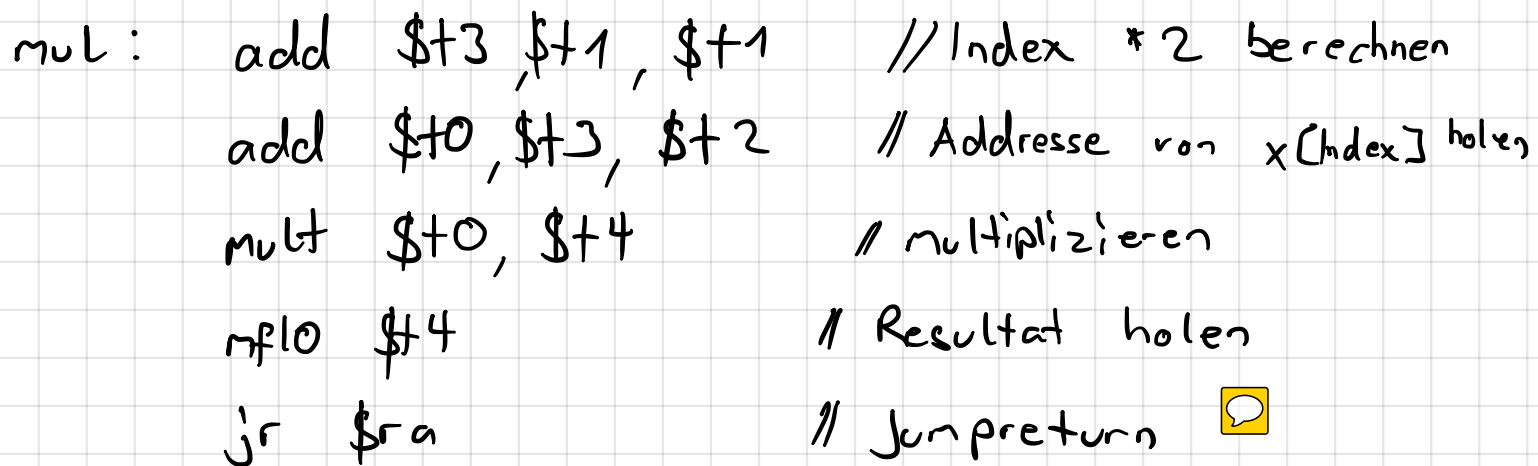 mul: add $t3, $t1, $t1 // Index *2 berechnen
add $t0, $t3, $t2 // Addresse von x[Index] holen
mult $t0, $t4 // multiplizieren
mflo $t4 // Resultat holen
jr $ra // Jumpreturn